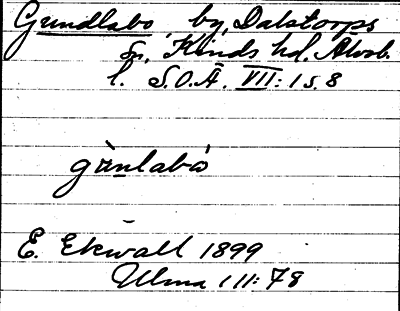 Grundlabo by, Dalstorps
sn, Kinds hd. Älvsb.
l. S.O.Ä. VII: 1 s. 8
gùnlabò
E. Ekwall 1899
Ulma 111: 78